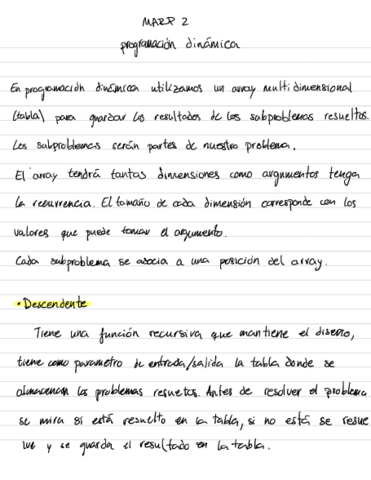 MARP 2
programación dinámica
En programación dinámica utilizamos un array multidimensional
(tabla) para guardar los resultados de los subproblemas resueltos.
Los subproblemas serán partes de nuestro problema.
El array tendrá tantas dimensiones como argumentos tenga
la recurrencia. El tamaño de cada dimensión corresponde con los
valores que puede tomar el argumento.
Cada subproblema se asocia a una posición del array.
• Descendente
Tiene una función recursiva que mantiene el diseño,
tiene como parametro de entrada/salida la tabla donde se
almacenan los problemas resueltos. Antes de resolver el problema
se mira si está resuelto en la tabla, si no está se resue
lve y se guarda el resultado en la tabla.